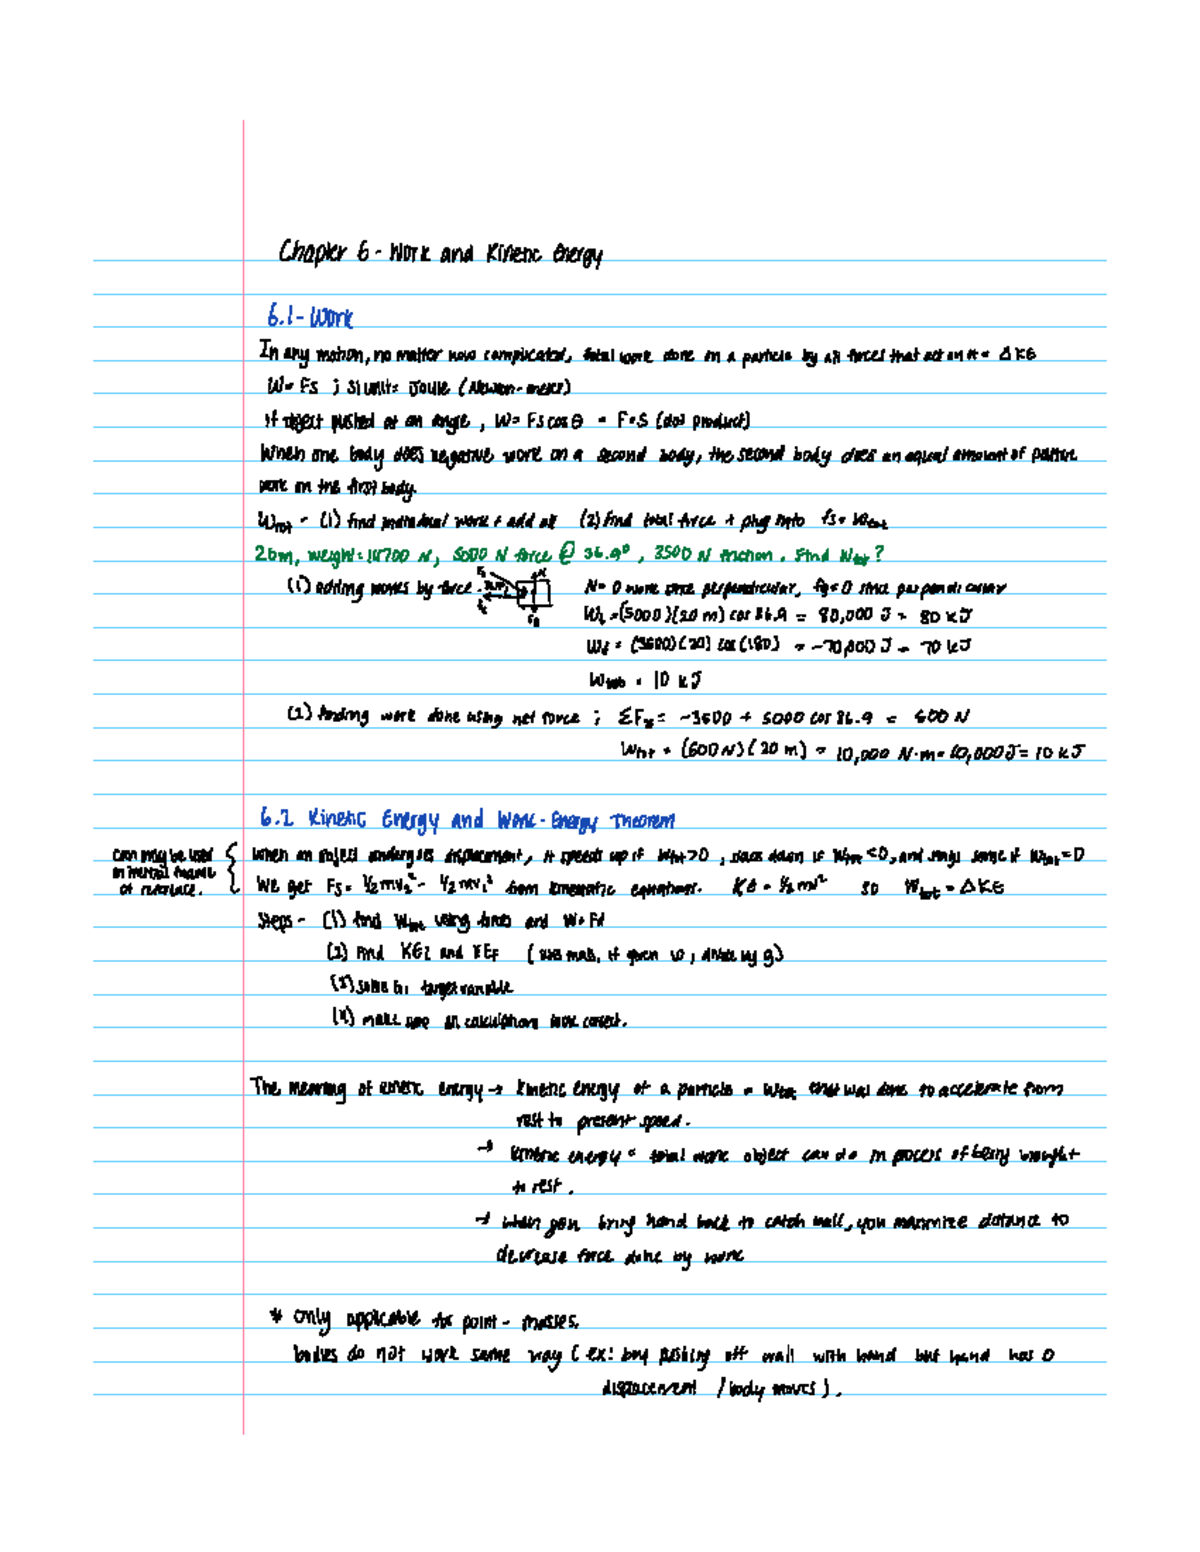 Chapter 6 - Work and Kinetic Energy
6.1 - Work
In any motion, no matter how complicated, total work done on a particle by all forces that act on it = ΔKE
W = Fs ; SI unit = Joule (Newton-meter)
if object pushed at an angle, W = Fs cos θ = F • S (dot product)
When one body does negative work on a second body, the second body does an equal amount of positive
work on the first body.
Wtot - (1) find individual work + add all (2) find total force + plug into fs = Wtot
20m, weight = 14700 N, 5000 N force @ 36.9°, 3500 N friction. Find Wtot?
(1) adding works by force.
N = 0 work since perpendicular, fg = 0 since perpendicular
= (5000)(20 m) cos 36.9 = 80,000 J = 80 kJ
Wf = (3500)(20) cos(180) = -70,000 J = 70 kJ
Wtot = 10 kJ
(2) finding work done using net force ; ΣFx = -3500 + 5000 cos 36.9 = 500 N
Wtot = (500 N)(20 m) = 10,000 N·m = 10,000 J = 10 kJ
6.2 Kinetic Energy and Work-Energy Theorem
can only be used
in inertial frame
of reference.
When an object undergoes displacement, it speeds up if Wtot > 0, slows down if Wtot < 0, and stays same if Wtot = 0
We get Fs = ½mv₂² - ½mv₁² from kinematic equations. KE = ½mv² so Wtot = ΔKE
Steps - (1) find Wtot using forces and W = Fd
(2) Find KEi and KEF (use mass, if given w, divide by g)
(3) solve for target variable
(4) make sure all calculations look correct.
The meaning of kinetic energy → kinetic energy of a particle = Wtot that was done to accelerate from
rest to present speed.
→ kinetic energy = total work object can do in process of being brought
to rest.
→ when you bring hand back to catch ball, you maximize distance to
decrease force done by work
* only applicable for point-masses.
bodies do not work same way (ex: boy pushing off wall with hand but hand has 0
displacement / body moves).